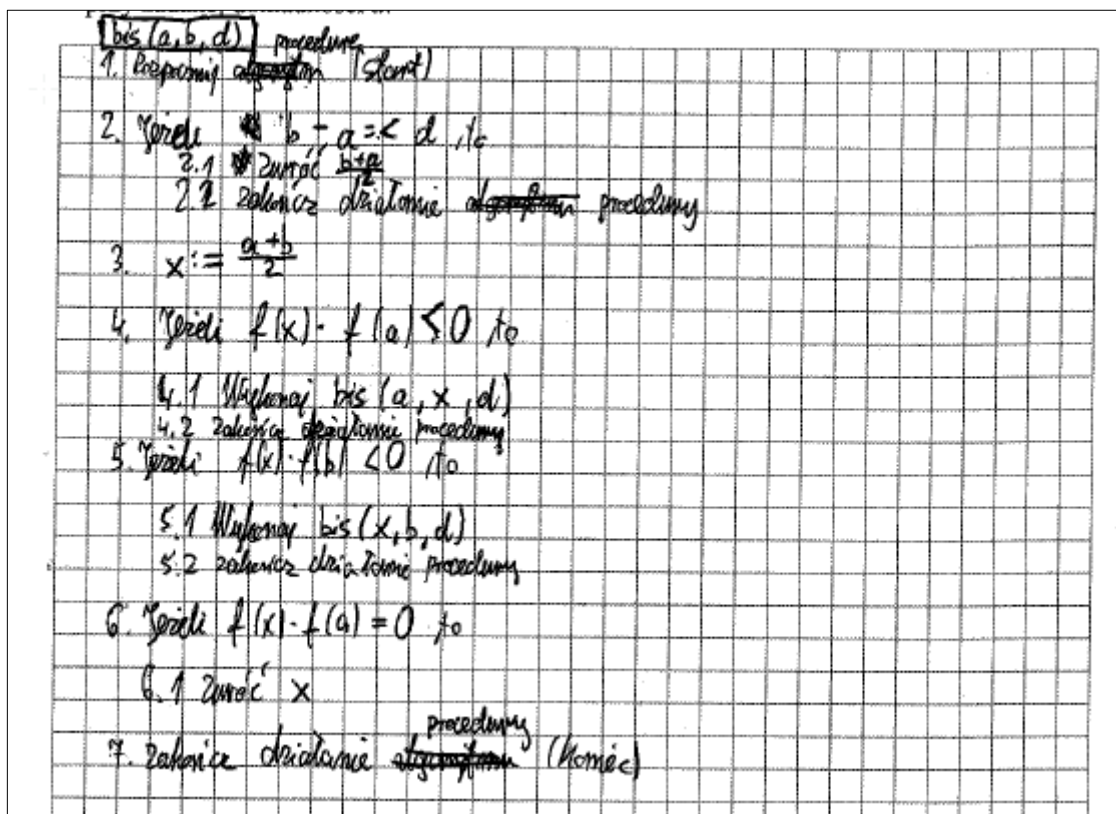 bis(a,b,d)
procedurę
1. Rozpocznij (start)
2. Jeżeli b - a =< d, to
2.1 Zwróć (b+a)/2
2.2 zakończ działanie procedury
3. x := (a+b)/2
4. Jeżeli f(x) · f(a) < 0 to
4.1 Wykonaj bis (a, x, d)
4.2 zakończ działanie procedury
5. Jeżeli f(x) · f(b) < 0 to
5.1 Wykonaj bis (x, b, d)
5.2 zakończ działanie procedury
6. Jeżeli f(x) · f(a) = 0 to
6.1 Zwróć x
procedury
7. Zakończ działanie (koniec)